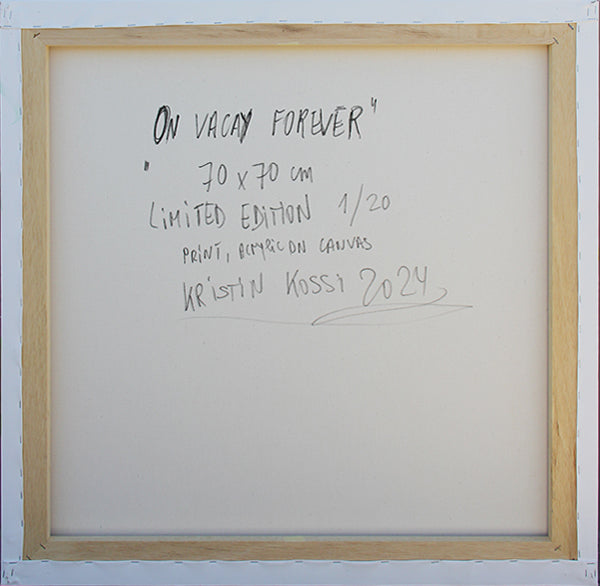 ON VACAY FOREVER"
" 70 x 70 cm
LIMITED EDITION 1/20
PRINT, ACRYLIC ON CANVAS
KRISTIN KOSSI 2024